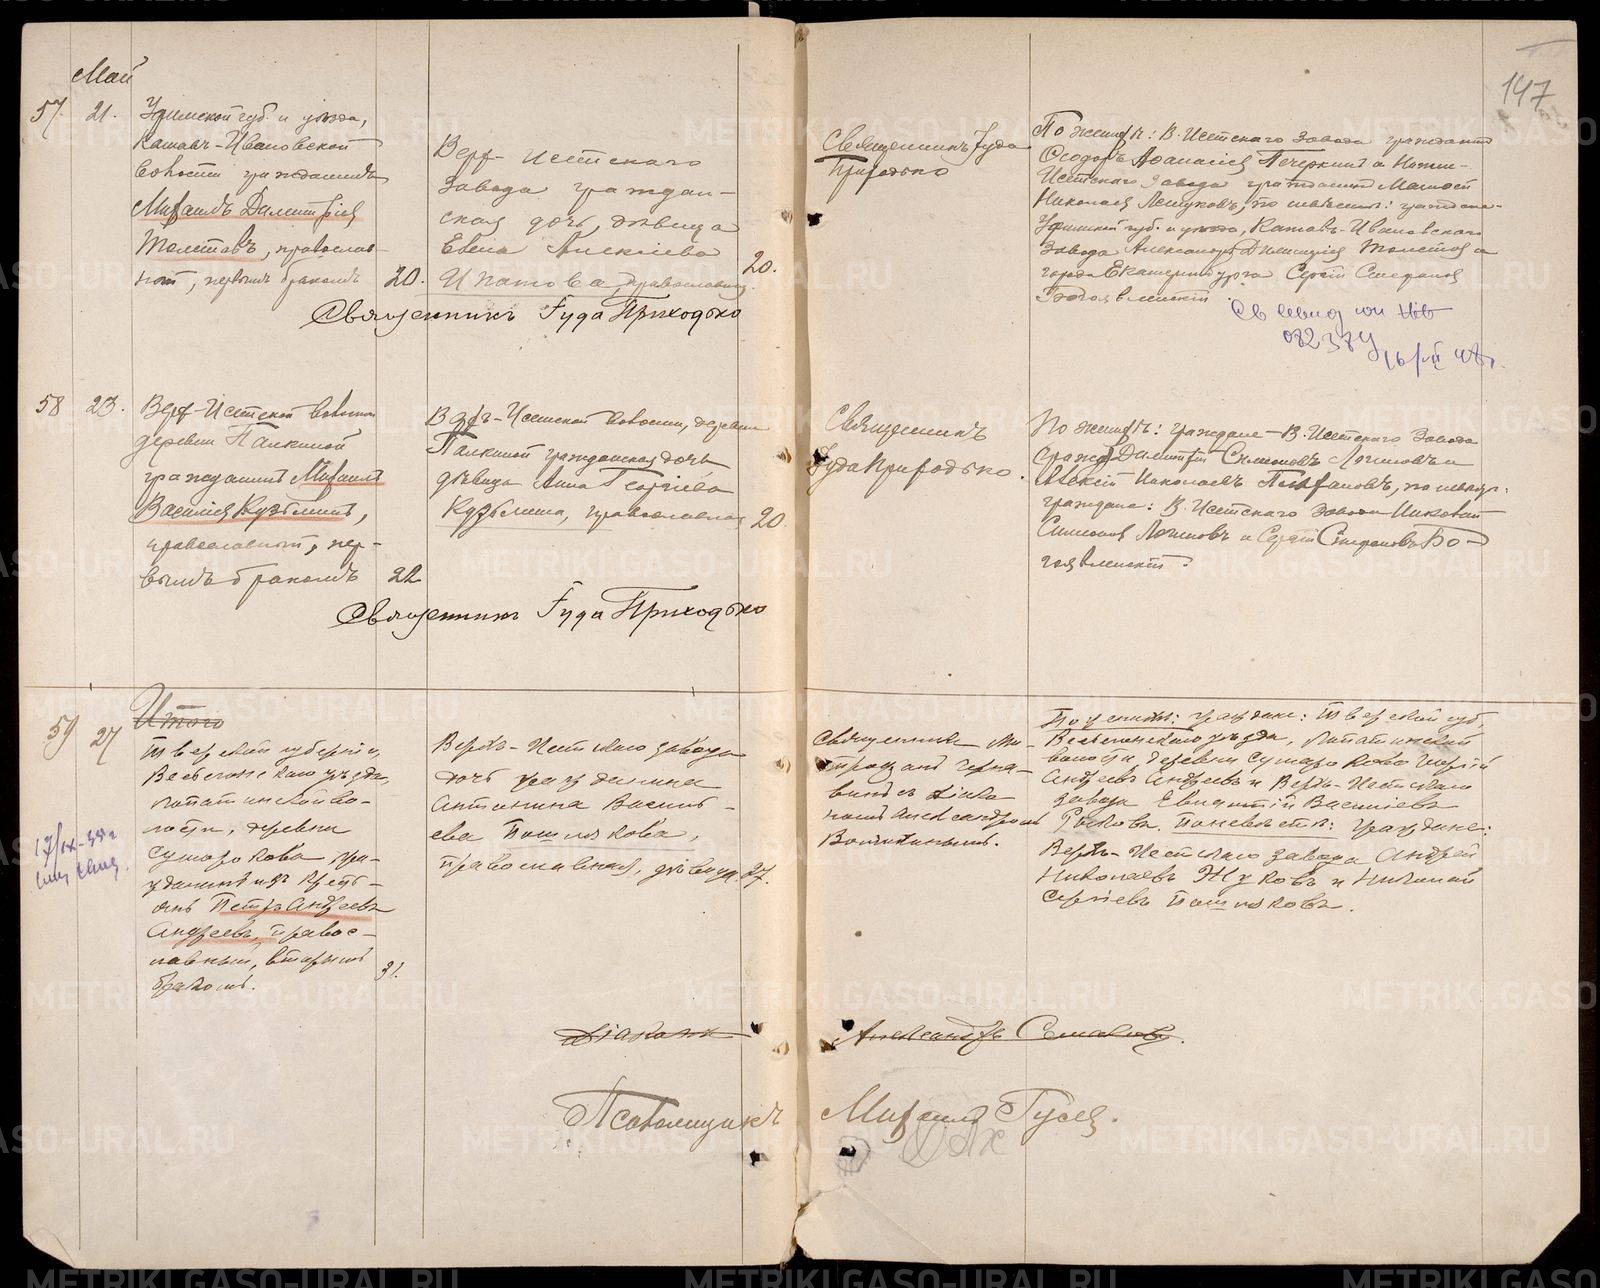 Май
147
57. 21. Уфимской губ. и уѣзда,
Катавъ-Ивановской
волости гражданинъ
Михаилъ Димитріев
Толстовъ, православ-
ный, первымъ бракомъ 20.
Верх-Исетскаго
завода граждан-
ская дочь, дѣвица
Елена Алексіева
Ипатова православная 20.
Священникъ Іуда Приходько
Священникъ Іуда
Приходько
По женихѣ: В. Исетскаго завода гражданин
Ѳеодоръ Аѳанасіев Печеркинъ и Нижне-
Исетскаго завода гражданин
Николаев по невѣстѣ: граждане
Уфимской губ. и уѣзда, Катавъ-Ивановскаго
завода Александръ Димитріев Толстов и
города Екатеринбурга Сергій Стефанов
Богоявленскій
082384
58 23. Верх-Исетской волости
деревни Палкиной
гражданинъ Михаилъ
Василіев Кузьминъ,
православный, пер-
вымъ бракомъ 22
Верхъ-Исетской волости, деревни
Палкиной гражданская дочь,
дѣвица Анна Георгіева
Кузьмина, православная 20.
Священникъ Іуда Приходько
Священникъ
Іуда Приходько.
По женихѣ: граждане В. Исетскаго завода
Димитрій Симеоновъ Логиновъ и
Алексій Николаевъ по невѣстѣ:
граждане: В. Исетскаго завода Николай
Симеонов Логиновъ и Сергій Стефановъ Бо-
гоявленскій.
Итого
59 27 Тверской губерніи,
Весьегонскаго уѣзда,
Лопатинской во-
лости, деревни
Сумарокова гра-
жданинъ изъ кресть-
янъ Петръ Андреевъ
Андреевъ, правос-
лавный, вторымъ
бракомъ. 31.
17/IX-33 г.
Верхъ-Исетскаго завода
дочь гражданина
Антонина Василь-
ева Пошлякова,
православная, дѣвица. 27.
Священникъ Ми-
трофанъ
винъ съ діако-
номъ Александромъ
По женихѣ: граждане: Тверской губ.
Весьегонскаго уѣзда, Лопатинской
волости, деревни Сумароково Георгій
Андреевъ Андреевъ и Верхъ-Исетскаго
завода Евлампій Василіевъ
По невѣстѣ: граждане:
Верхъ-Исетскаго завода Андрей
Николаевъ Жуковъ и Николай
Сергіевъ Пошляковъ.
Діаконъ Александръ
Псаломщикъ Михаилъ Гусев.
METRIKI.GASO-URAL.RU